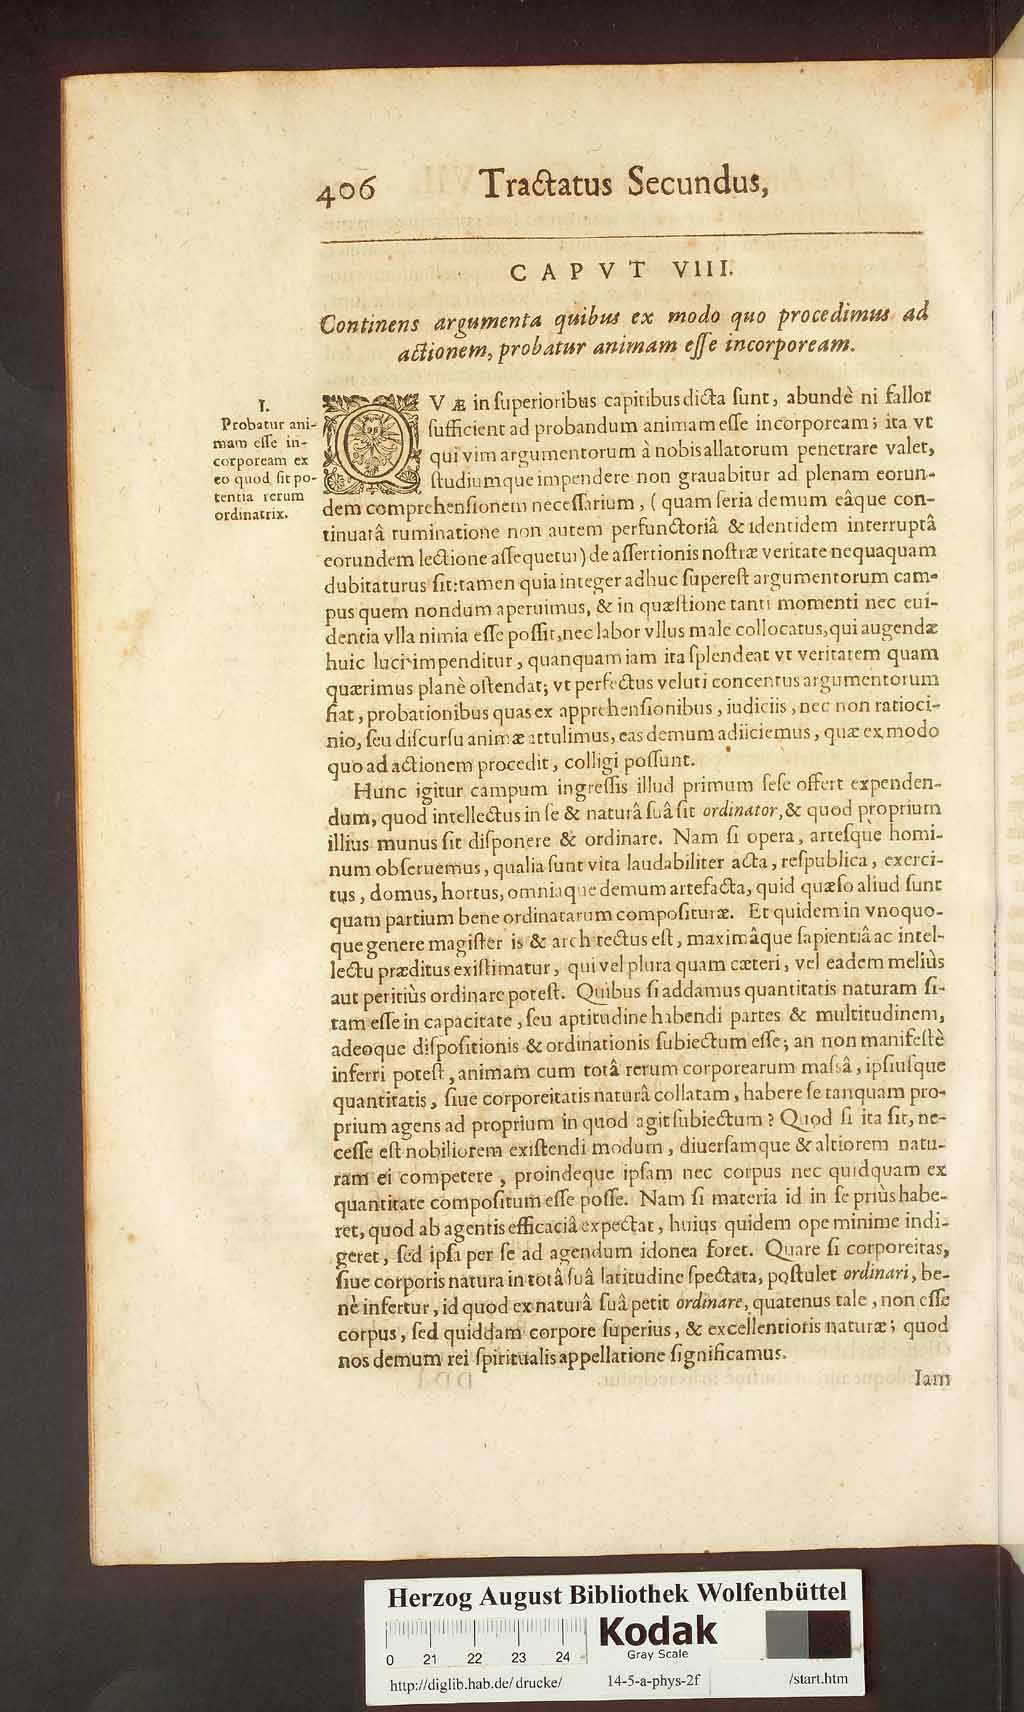 406 Tractatus Secundus,
CAPVT VIII.
Continens argumenta quibus ex modo quo procedimus ad
actionem, probatur animam eſſe incorpoream.
I.
Probatur ani-
mam eſſe in-
corpoream ex
eo quod ſit po-
tentia rerum
ordinatrix.
QVÆ in ſuperioribus capitibus dicta ſunt, abundè ni fallor
ſufficient ad probandum animam eſſe incorpoream; ita vt
qui vim argumentorum à nobis allatorum penetrare valet,
ſtudiumque impendere non grauabitur ad plenam eorun-
dem comprehenſionem neceſſarium, (quam ſeria demum eâque con-
tinuatâ ruminatione non autem perfunctoriâ & identidem interruptâ
eorundem lectione aſſequetur) de aſſertionis noſtræ veritate nequaquam
dubitaturus ſit: tamen quia integer adhuc ſupereſt argumentorum cam-
pus quem nondum aperuimus, & in quæſtione tanti momenti nec eui-
dentia vlla nimia eſſe poſſit, nec labor vllus male collocatus, qui augendæ
huic luci impenditur, quanquam iam ita ſplendeat vt veritatem quam
quærimus planè oſtendat; vt perfectus veluti concentus argumentorum
fiat, probationibus quas ex apprehenſionibus, iudiciis, nec non ratioci-
nio, ſeu diſcurſu animæ attulimus, eas demum adiiciemus, quæ ex modo
quo ad actionem procedit, colligi poſſunt.
Hunc igitur campum ingreſſis illud primum ſeſe offert expenden-
dum, quod intellectus in ſe & naturâ ſuâ ſit ordinator, & quod proprium
illius munus ſit diſponere & ordinare. Nam ſi opera, arteſquè homi-
num obſeruemus, qualia ſunt vita laudabiliter acta, reſpublica, exerci-
tus, domus, hortus, omniaque demum artefacta, quid quæſo aliud ſunt
quam partium bene ordinatarum compoſituræ. Et quidem in vnoquo-
que genere magiſter is & architectus eſt, maximâque ſapientiâ ac intel-
lectu præditus exiſtimatur, qui vel plura quam cæteri, vel eadem meliùs
aut peritiùs ordinare poteſt. Quibus ſi addamus quantitatis naturam ſi-
tam eſſe in capacitate, ſeu aptitudine habendi partes & multitudinem,
adeoque diſpoſitionis & ordinationis ſubiectum eſſe; an non manifeſtè
inferri poteſt, animam cum totâ rerum corporearum maſsâ, ipſiuſque
quantitatis, ſiue corporeitatis naturâ collatam, habere ſe tanquam pro-
prium agens ad proprium in quod agit ſubiectum? Quod ſi ita ſit, ne-
ceſſe eſt nobiliorem exiſtendi modum, diuerſamque & altiorem natu-
ram ei competere, proindeque ipſam nec corpus nec quidquam ex
quantitate compoſitum eſſe poſſe. Nam ſi materia id in ſe priùs habe-
ret, quod ab agentis efficaciâ expectat, huius quidem ope minime indi-
geret, ſed ipſa per ſe ad agendum idonea foret. Quare ſi corporeitas,
ſiue corporis natura in totâ ſuâ latitudine ſpectata, poſtulet ordinari, be-
nè infertur, id quod ex naturâ ſuâ petit ordinare, quatenus tale, non eſſe
corpus, ſed quiddam corpore ſuperius, & excellentioris naturæ; quod
nos demum rei ſpiritualis appellatione ſignificamus.
Iam
Herzog August Bibliothek Wolfenbüttel
Kodak
Gray Scale
0 21 22 23 24
http://diglib.hab.de/drucke/ 14-5-a-phys-2f /start.htm